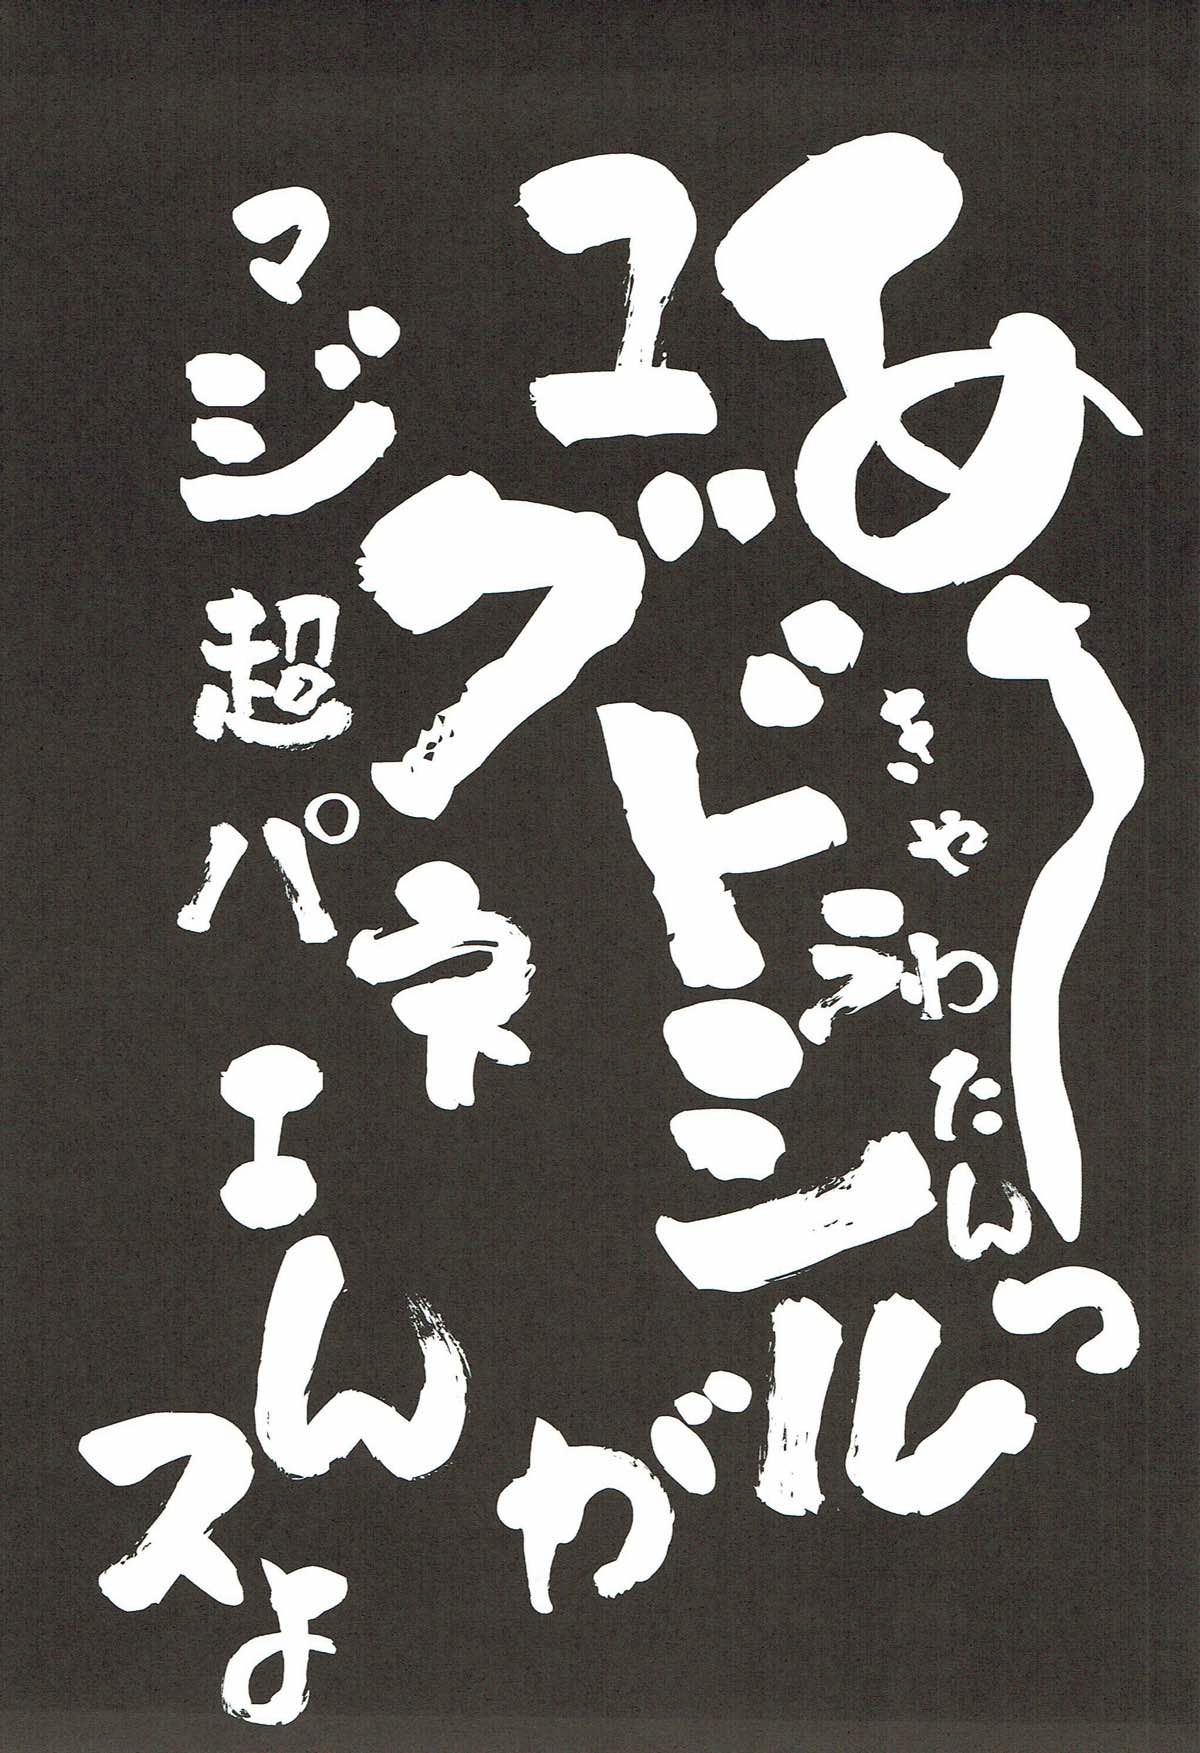 あーっ
きゃわたん
ユグドラシルが
マジ超パネェんスよ